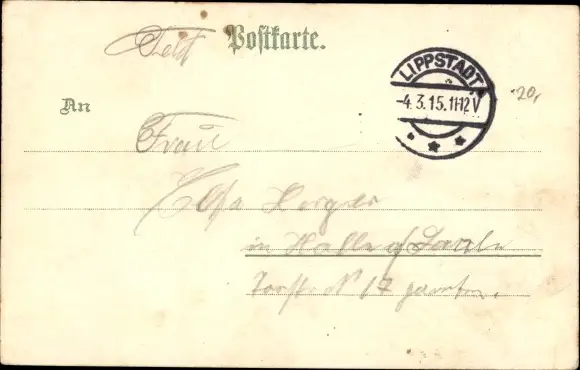 Feld Postkarte.
LIPPSTADT
-4.3.15.11-12V
20,
An
Frau
Elsa
in Halle a/Saale
Torstr N 17